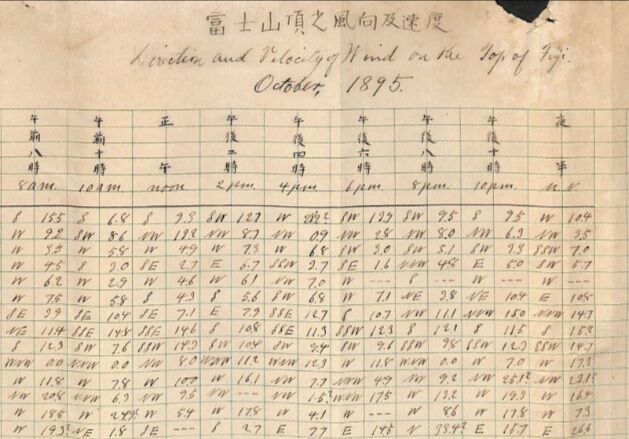 富士山頂之風向及速度
Direction and Velocity of Wind on the Top of Fuji.
October, 1895.
午前八時 午前十時 正午 午後二時 午後四時 午後六時 午後八時 午後十時 夜半
8 a.m. 10 a.m. noon 2 p.m. 4 p.m. 6 p.m. 8 p.m. 10 p.m.
S 15.5 S 6.8 S 9.3 SW 12.7 W SW 13.9 SW 9.5 S 9.5 W 10.4
W 9.2 SW 8.6 NW NW 8.7 NW 0.9 NW 2.8 NW 8.0 NW 6.3 NW 3.5
W 3.5 W 5.8 W 4.9 W 7.3 W 6.8 SW 3.0 SW 5.1 SW 3.3 SSW 7.0
W 4.5 S 3.0 SE 2.7 E 5.7 SSW 3.7 SE 1.6 NNW 4.8 E 5.0 SW 5.7
W 6.2 W 2.9 W 4.6 W 6.1 NW 7.0 W --- W --- W --- W ---
W 7.5 W 5.8 S 4.3 S 5.6 SW 6.8 W 7.1 NE 3.8 NE 10.4 E 10.8
SE 3.9 SE 10.4 SE 7.1 E 7.9 SSE 12.7 S 10.7 NW 11.1 NNW 15.0 NW 14.7
NE 11.4 SSE 14.8 SSE 14.6 S 10.8 SSE 11.3 SSW 12.3 S 12.1 S 11.5 S 15.2
S 12.3 SW 7.6 SSW 14.3 SW 10.4 SW 9.4 SW 9.6 SSW 9.8 SSW 12.3 SSW 14.7
WNW 0.0 NNW 0.0 NW 8.0 WNW 11.2 WNW 12.3 W 11.8 WNW 0.0 W 7.0 W 17.3
W 11.8 W 7.8 W 10.0 W 16.1 NW 7.7 NNW 4.9 NW 9.2 NW 25.1 NW 23.1
NW 20.8 NW 6.3 NW 9.5 NW --- NW 1.5 WNW 17.5 W 13.2 W 19.3 W 16.4
W 18.5 W W 5.4 W 17.8 W 4.1 W --- W 8.6 W 17.8 W 7.3
W 19.3 NE 1.8 SE --- S 2.7 E 7.7 E 14.5 N 38.4 E 15.7 E 26.6